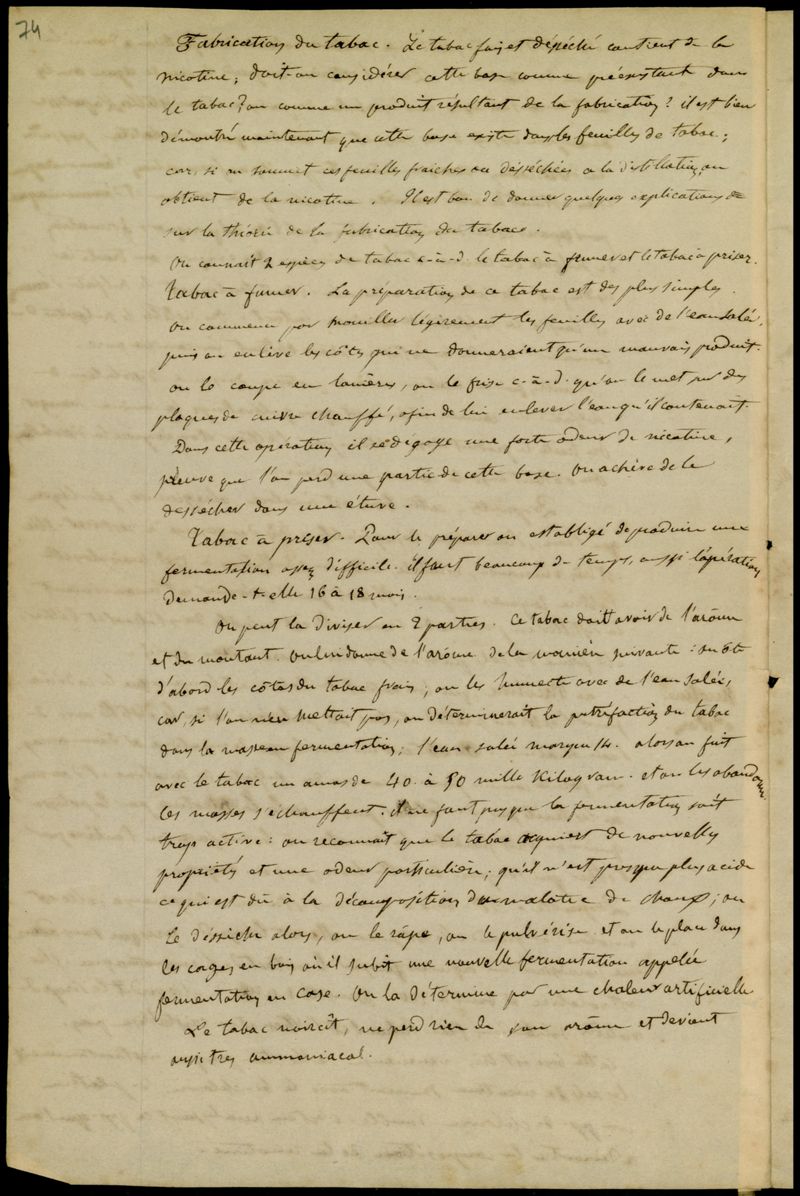 74
Fabrication du tabac. Le tabac frais et désséché contient de la
nicotine; doit-on considérer cette base comme préexistante dans
le tabac? ou comme un produit résultant de la fabrication? il est bien
démontré maintenant que cette base existe dans les feuilles de tabac;
car, si on soumet ces feuilles fraiches ou désséchées a la distillation, on
obtient de la nicotine. Il est bon de donner quelques explications
sur la théorie de la fabrication du tabac.
On connait 2 espèces de tabac c-à-d. le tabac à fumer et le tabac à priser.
Tabac à fumer. La préparation de ce tabac est des plus simples.
on commence par mouiller légèrement les feuilles avec de l'eau salée,
puis on enlève les côtes qui ne donneraient qu'un mauvais produit.
on le coupe en lanières, on le frise c-à-d. qu'on le met sur des
plaques de cuivre chauffé, afin de lui enlever l'eau qu'il contenait.
Dans cette opération il se dégage une forte odeur de nicotine,
preuve que l'on perd une partie de cette base. On achève de le
dessécher dans une étuve.
Tabac à priser. Pour le préparer on est obligé de produire une
fermentation assez difficile. il faut beaucoup de temps, aussi l'opération
demande-t-elle 16 à 18 mois.
On peut la diviser en 2 parties. Ce tabac doit avoir de l'arôme
et du montant. On lui donne de l'arôme de la manière suivante: on ôte
d'abord les côtes du tabac frais, on les humecte avec de l'eau salée,
car, si l'on n'en mettait pas, on déterminerait la putréfaction du tabac
dans la masse en fermentation; l'eau salée marque 14. alors on fait
avec le tabac un amas de 40 à 50 mille Kilogram. et on les abandonne.
Ces masses s'échauffent. il ne faut pas que la fermentation soit
trop active: on reconnait que le tabac acquiert de nouvelles
propriétés et une odeur particulière; qu'il n'est presque plus acide
ce qui est dû à la décomposition du malate de chaux; on
le déssèche alors, on le râpe, on le pulvérise et on le place dans
les cages en bois où il subit une nouvelle fermentation appelée
fermentation en case. On la détermine par une chaleur artificielle
Le tabac noircit, ne perd rien de son arôme et devient
aussi très ammoniacal.